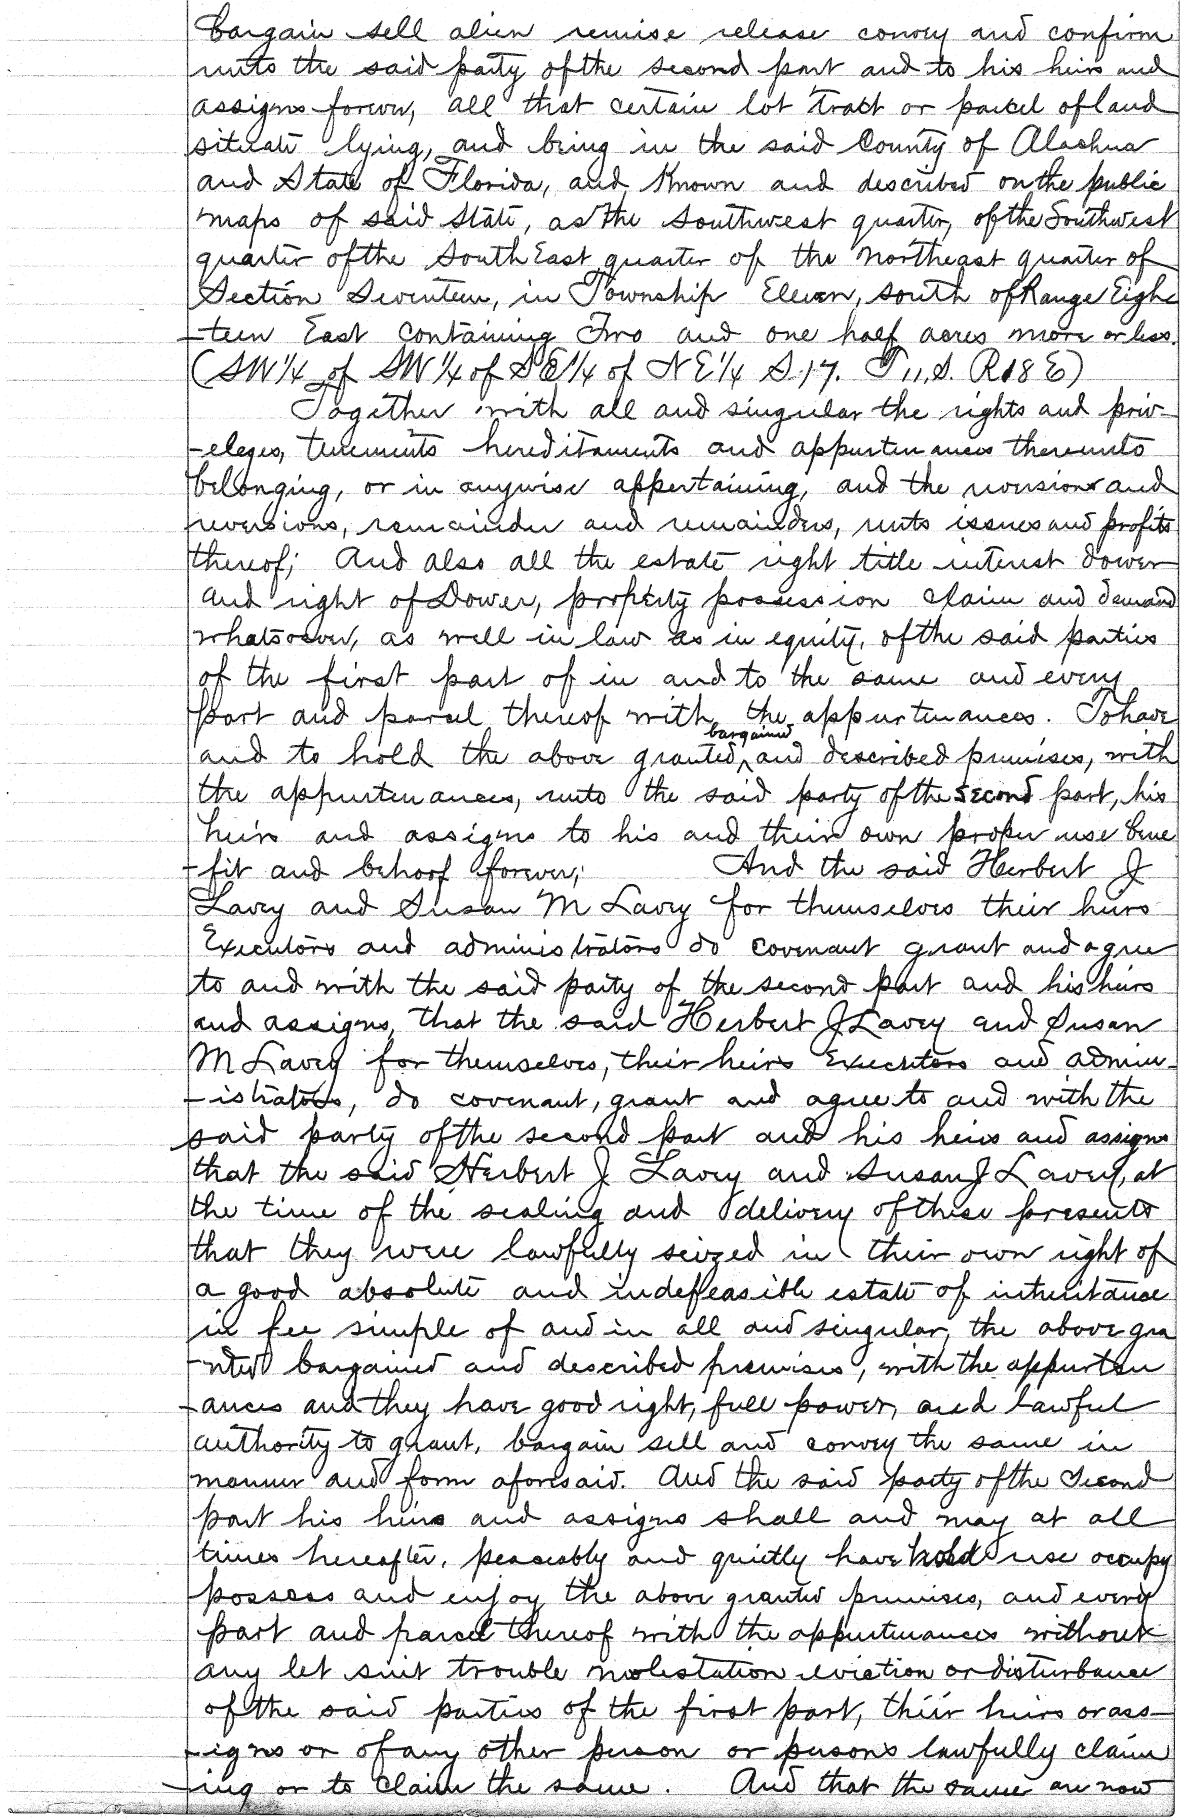 bargain sell alien remise release convey and confirm
unto the said party of the second part and to his heirs and
assigns forever, all that certain lot tract or parcel of land
situate lying, and being in the said County of Alachua
and State of Florida, and Known and described on the public
maps of said State, as the Southwest quarter, of the Southwest
quarter of the South East quarter of the Northeast quarter of
Section Seventeen, in Township Eleven, south of Range Eigh
-teen East containing Two and one half acres more or less.
(SW 1/4 of SW 1/4 of SE 1/4 of NE 1/4 S.17. T 11. S. R 18 E)
Together with all and singular the rights and priv-
-eleges, tenements hereditaments and appurtenances thereunto
belonging, or in anywise appertaining, and the reversion and
reversions, remainder and remainders, rents issues and profits
thereof; And also all the estate right title interest dower
and right of Dower, property possession claim and demand
whatsoever, as well in law as in equity, of the said parties
of the first part of in and to the same and every
part and parcel thereof with the appurtenances. To have
and to hold the above granted, bargained and described premises, with
the appurtenances, unto the said party of the second part, his
heirs and assigns to his and their own proper use bene
-fit and behoof forever; And the said Herbert J
Lavey and Susan M Lavey for themselves their heirs
Executors and administrators do covenant grant and agree
to and with the said party of the second part and his heirs
and assigns, that the said Herbert J Lavey and Susan
M Lavey for themselves, their heirs Executors and admin-
-istrators, do covenant, grant and agree to and with the
said party of the second part and his heirs and assigns
that the said Herbert J Lavey and Susan J Lavey, at
the time of the sealing and delivery of these presents
that they were lawfully seized in their own right of
a good absolute and indefeasible estate of inheritance
in fee simple of and in all and singular, the above gra
-nted bargained and described premises, with the appurten
-ances and they have good right, full power, and lawful
authority to grant, bargain sell and convey the same in
manner and form aforesaid. And the said party of the Second
part his heirs and assigns shall and may at all
times hereafter, peaceably and quietly have hold use occupy
possess and enjoy the above granted premises, and every
part and parcel thereof with the appurtenances without
any let suit trouble molestation eviction or disturbance
of the said parties of the first part, their heirs or ass-
-igns or of any other person or persons lawfully claim
-ing or to claim the same. And that the same are now